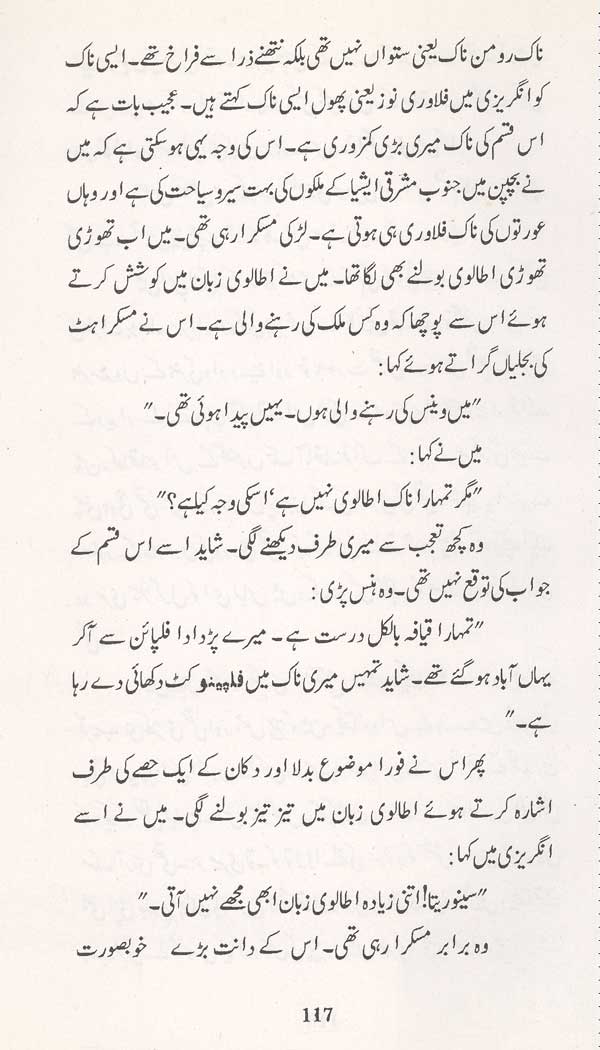 ناک رومن ناک یعنی ستواں نہیں تھی بلکہ نتھنے ذرا سے فراخ تھے۔ ایسی ناک
کو انگریزی میں فلاوری نوز یعنی پھول ایسی ناک کہتے ہیں۔ عجیب بات ہے کہ
اس قسم کی ناک میری بڑی کمزوری ہے۔ اس کی وجہ یہی ہو سکتی ہے کہ میں
نے بچپن میں جنوب مشرقی ایشیا کے ملکوں کی بہت سیر و سیاحت کی ہے اور وہاں
عورتوں کی ناک فلاوری ہی ہوتی ہے۔ لڑکی مسکرا رہی تھی۔ میں اب تھوڑی
تھوڑی اطالوی بولنے بھی لگا تھا۔ میں نے اطالوی زبان میں کوشش کرتے
ہوئے اس سے پوچھا کہ وہ کس ملک کی رہنے والی ہے۔ اس نے مسکراہٹ
کی بجلیاں گراتے ہوئے کہا:
"میں وینس کی رہنے والی ہوں۔ یہیں پیدا ہوئی تھی۔"
میں نے کہا:
"مگر تمہارا ناک اطالوی نہیں ہے' اسکی وجہ کیا ہے؟"
وہ کچھ تعجب سے میری طرف دیکھنے لگی۔ شاید اسے اس قسم کے
جواب کی توقع نہیں تھی۔ وہ ہنس پڑی:
"تمہارا قیافہ بالکل درست ہے۔ میرے پڑدادا فلپائن سے آکر
یہاں آباد ہو گئے تھے۔ شاید تمہیں میری ناک میں فلپینو کٹ دکھائی دے رہا
ہے۔"
پھر اس نے فورا موضوع بدلا اور دکان کے ایک حصے کی طرف
اشارہ کرتے ہوئے اطالوی زبان میں تیز تیز بولنے لگی۔ میں نے اسے
انگریزی میں کہا:
"سینوریتا! اتنی زیادہ اطالوی زبان ابھی مجھے نہیں آتی۔"
وہ برابر مسکرا رہی تھی۔ اس کے دانت بڑے خوبصورت
117